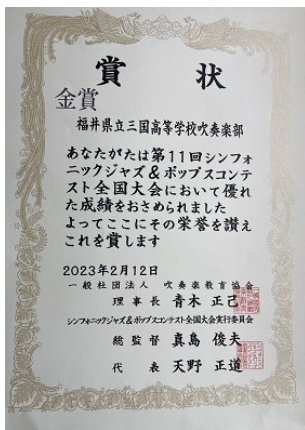 賞状
金賞
福井県立三国高等学校吹奏楽部
あなたがたは第11回シンフォ
ニックジャズ&ポップスコンテ
スト全国大会において優れ
た成績をおさめられました
よってここにその栄誉を讃え
これを賞します
2023年2月12日
一般社団法人 吹奏楽教育協会
理事長 青木正己
シンフォニックジャズ&ポップスコンテスト全国大会実行委員会
総監督 真島俊夫
代表 天野正道